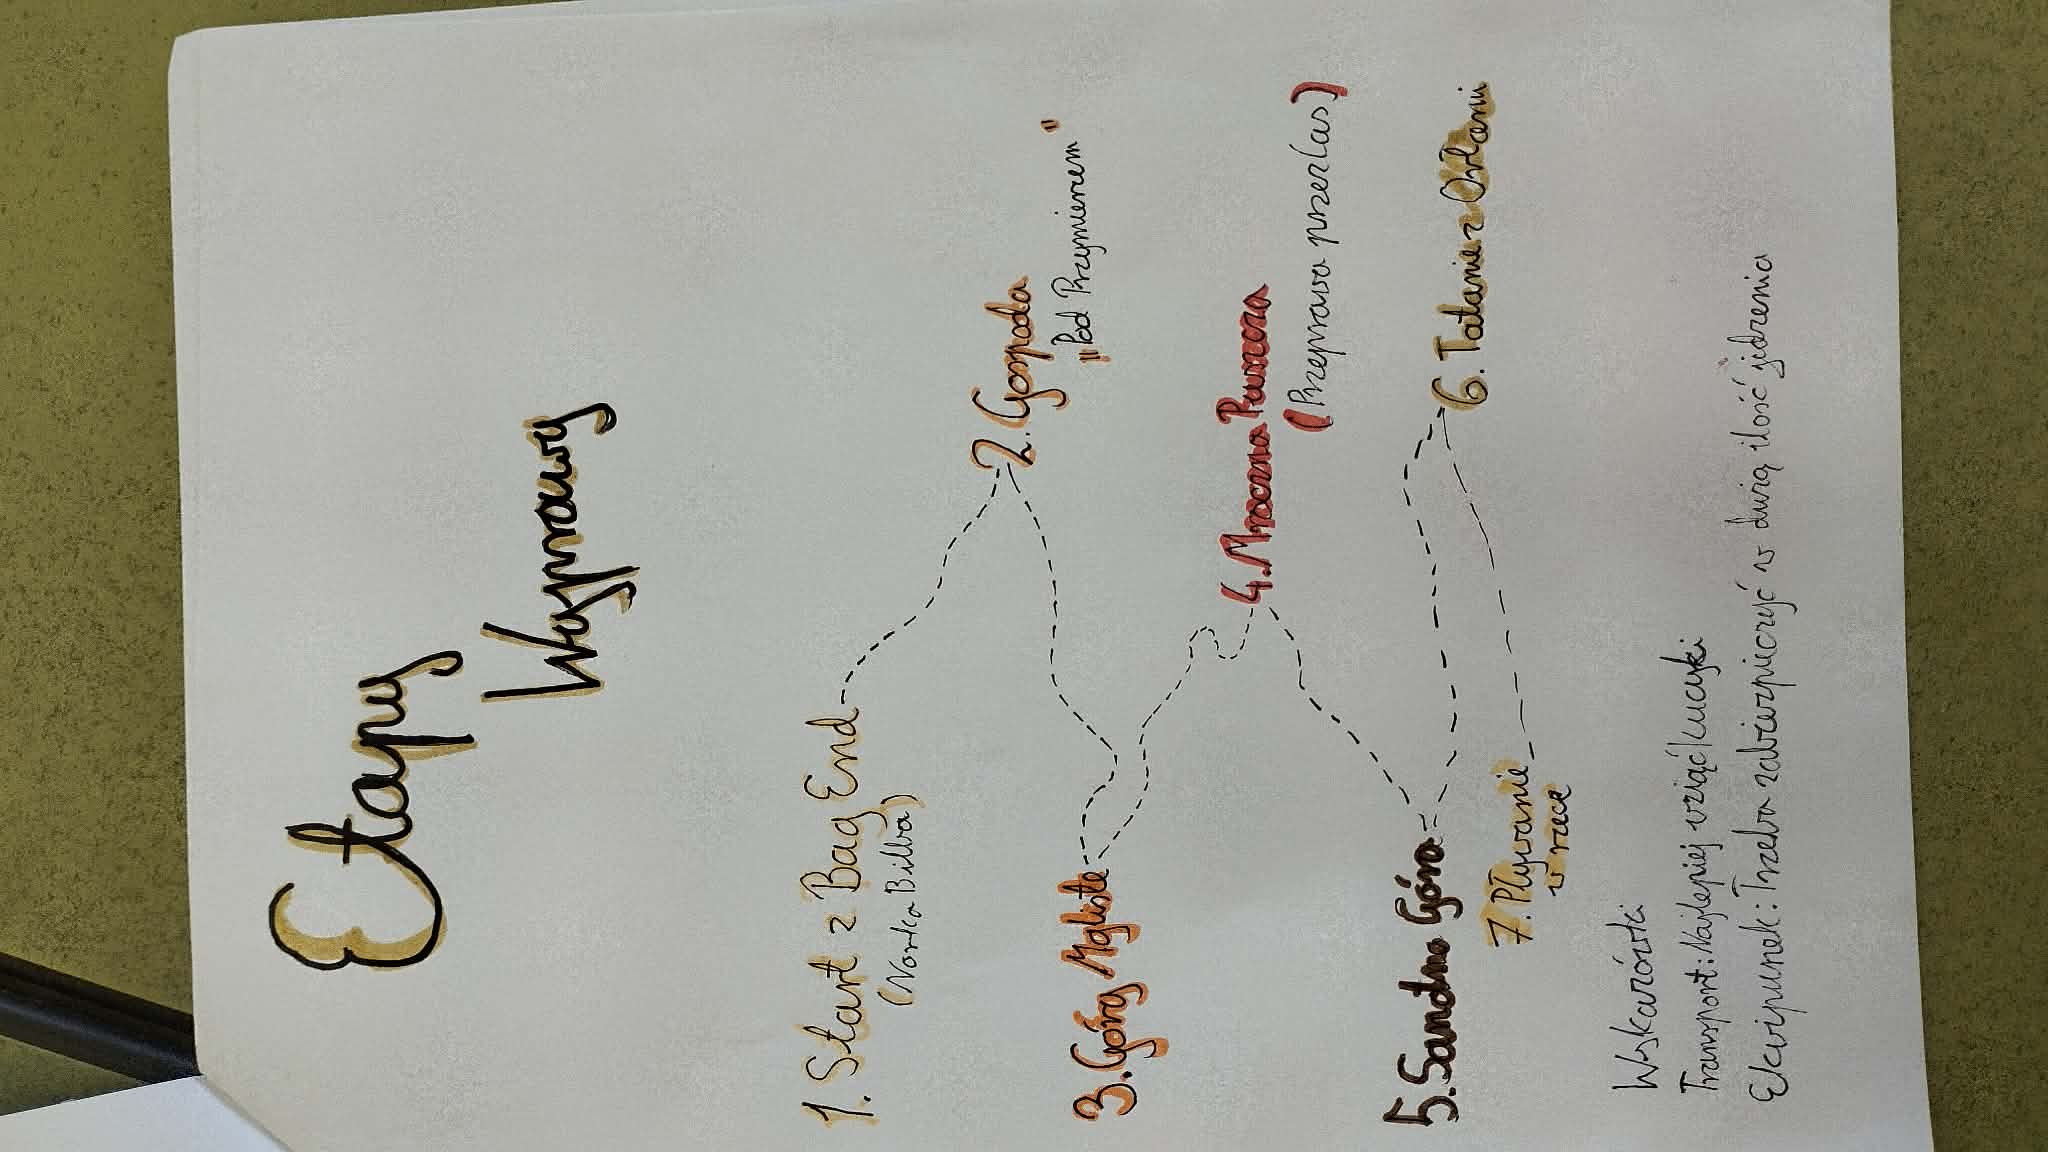 Etapy
Wyprawy
1. Start z Bag End
(Norka Bilba)
2. Gospoda
"Pod Rozymierzem"
3. Góry Mgliste
4. Mroczna Puszcza
(Przeprawa przez las)
5. Samotna Góra
6. Latanie z Orłami
7. Pływanie
w rzece
Wskazówki
Transport: Najlepiej wziąć kucyki
Ekwipunek: Trzeba zabezpieczyć w dużą ilość jedzenia